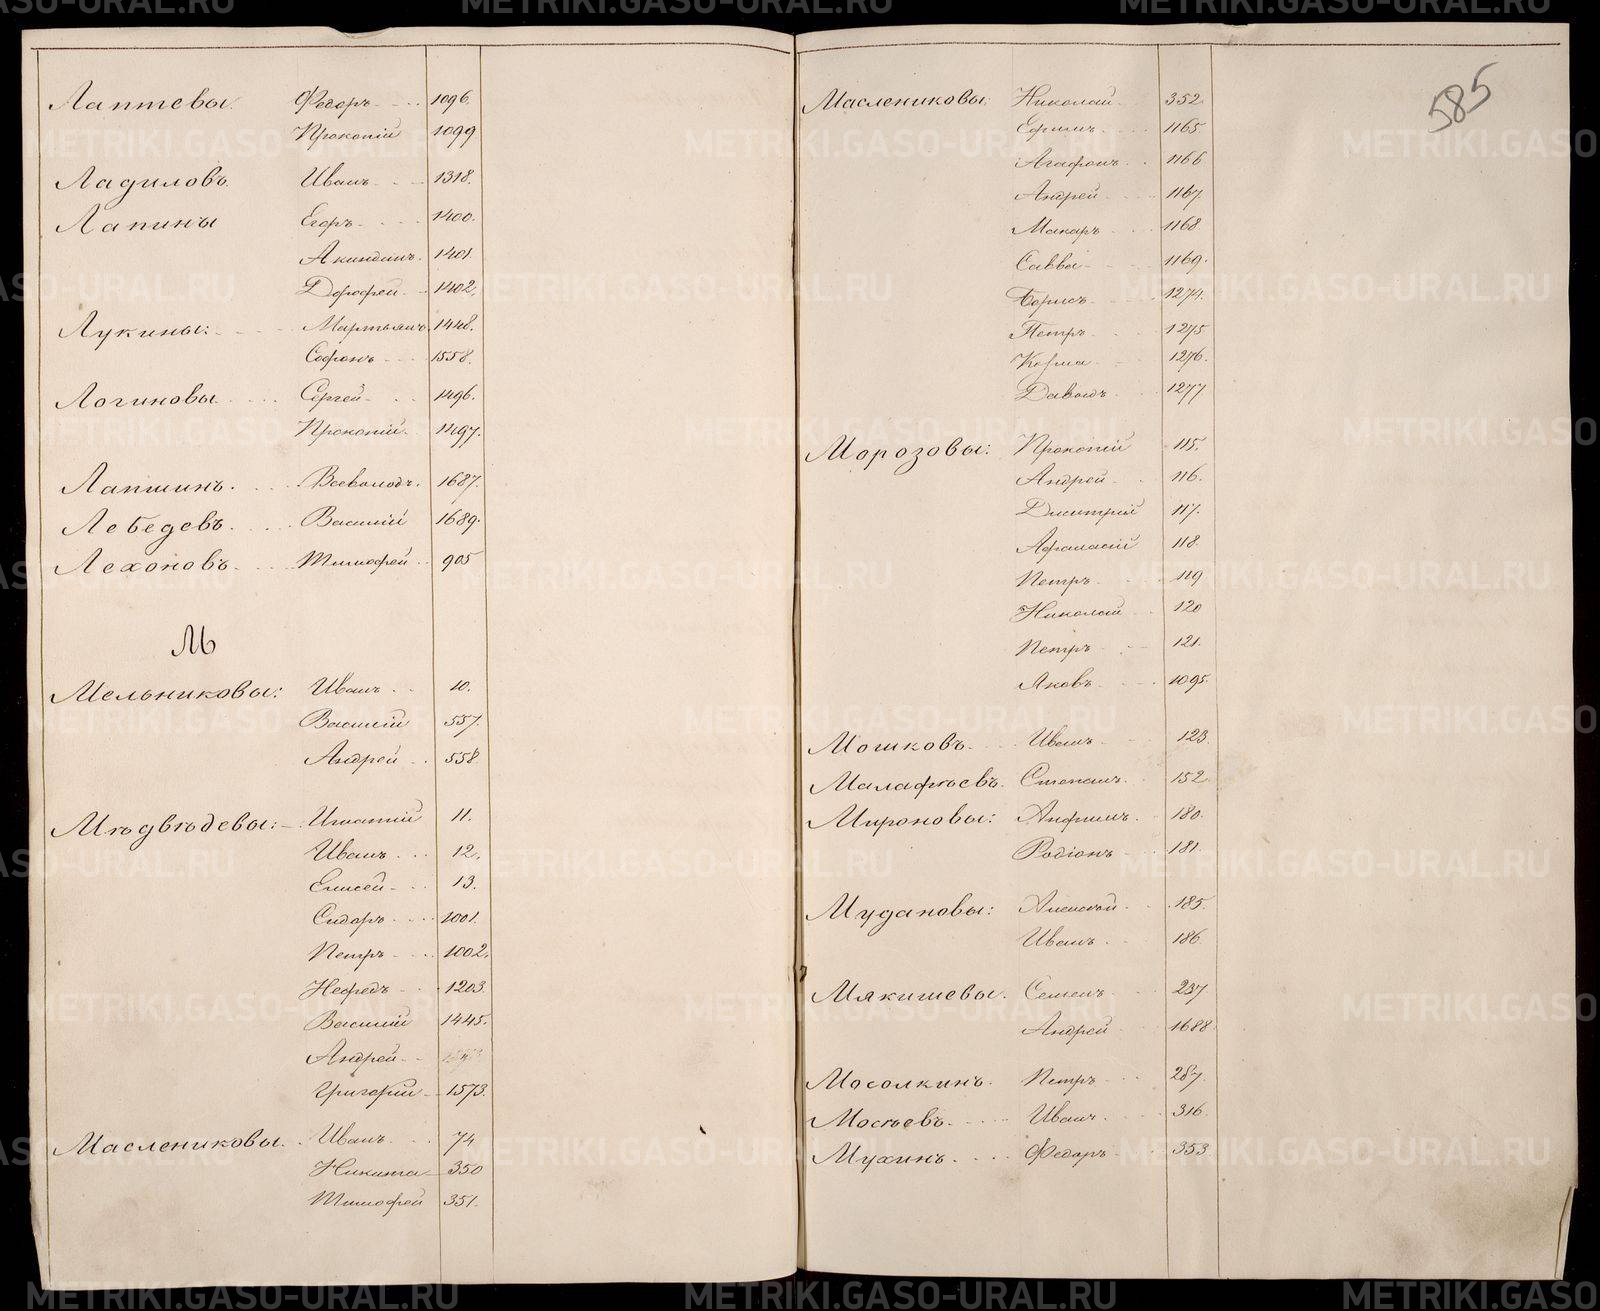 Лаптевы. Федоръ 1096.
Прокопій 1099
Ладиловъ. Иванъ 1318.
Лапины Егоръ 1400.
Акиндинъ. 1401.
Дорофей 1402.
Лукины: Мартьянъ. 1448.
Софонъ 1558.
Логиновы Сергей 1496.
Прокопій. 1497.
Лапшинъ. Всеволодъ. 1687.
Лебедевъ. Василій 1689.
Лехоновъ. Тимофей 905
М
Мельниковы: Иванъ 10.
Василій 557.
Андрей 558
Мѣдвѣдевы: Игнатій 11.
Иванъ 12.
Елисей 13.
Сидоръ 1001.
Петръ 1002.
Нефедъ 1203.
Василій 1445.
Андрей
Григорій 1573.
Маслениковы. Иванъ 74
Никита 350
Тимофей 351.
585
Маслениковы: Николай 352.
Ефимъ. 1165
Агафонъ. 1166
Андрей 1167.
Макаръ 1168
Савва 1169.
Борисъ 1274.
Петръ 1275
Козма 1276.
Давыдъ 1277
Морозовы: Прокопій 115.
Андрей 116.
Дмитрій 117.
Афанасій 118.
Петръ 119
Николай 120
Петръ 121.
Яковъ 1095.
Мошковъ. Иванъ 123.
Малафѣевъ. Степанъ. 152.
Мироновы: Анфимъ. 180.
Родіонъ 181.
Мудановы: Алексѣй 185.
Иванъ 186.
Мякишевы. Семенъ 237
Андрей 1688.
Мосолкинъ. Петръ 287.
Мосѣевъ. Иванъ. 316.
Мухинъ. Федоръ 353
METRIKI.GASO-URAL.RU